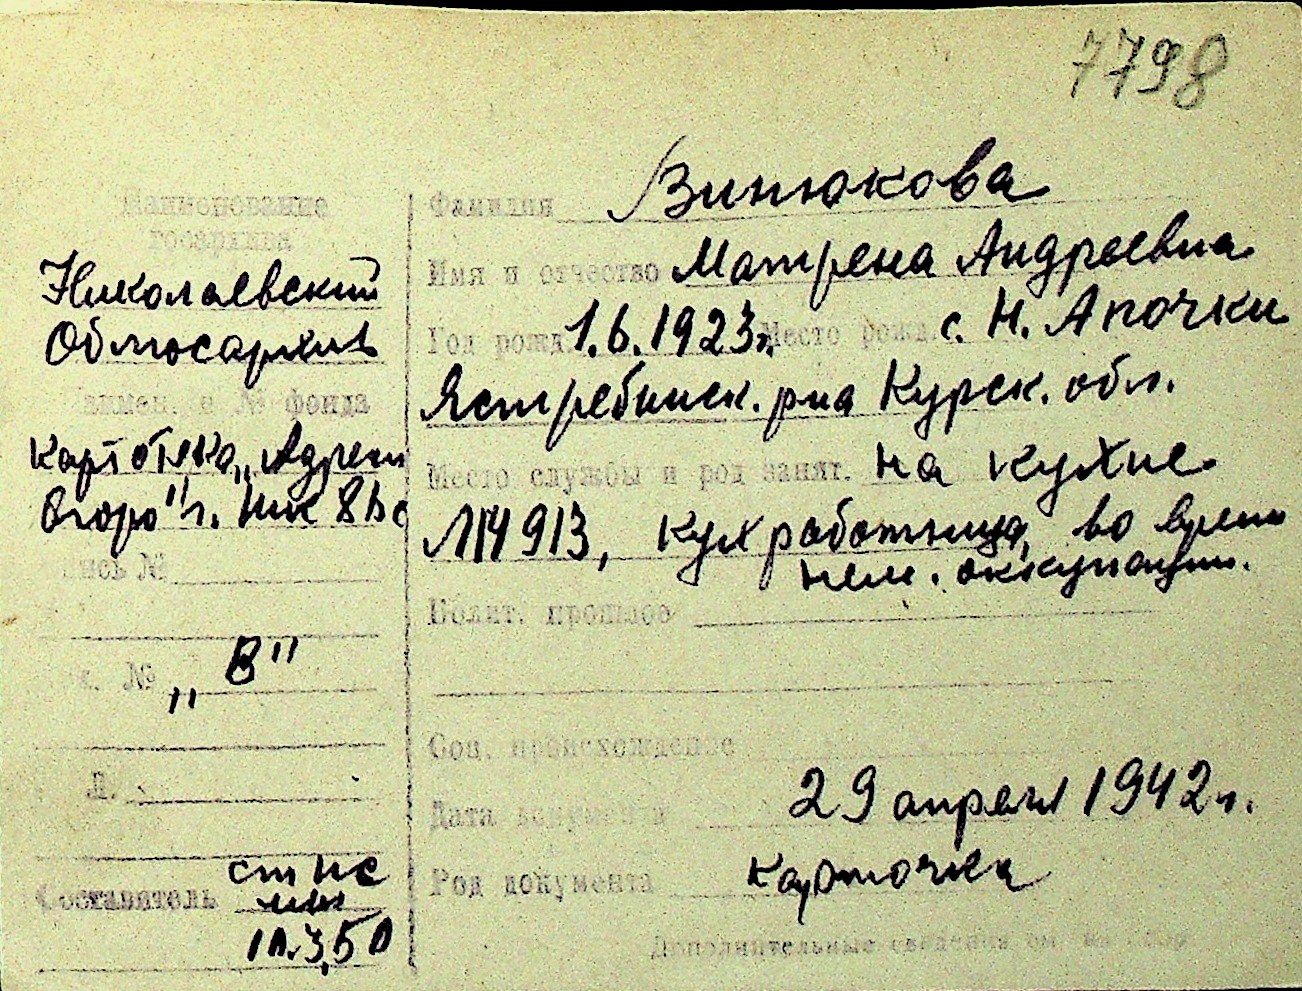 7798
Наименование
госархива
Николаевский
Облгосархив
наимен. и № фонда
Картотека „Адресн
бюро" г. Ник
опись №
№ „В"
Л.
Составитель
10.3.50
Фамилия Винюкова
Имя и отчество Матрена Андреевна
Год рожд. 1.6.1923г. Место рожд. с. Н. Апочки
Ястребинск. р-на Курск. обл.
Место службы и род занят. на кухне
913, кух работница, во время
нем. оккупации.
Полит. прошлое
Соц. происхождение
Дата документа 29 апреля 1942 г.
Род документа Карточка
Дополнительные сведения см. на обор